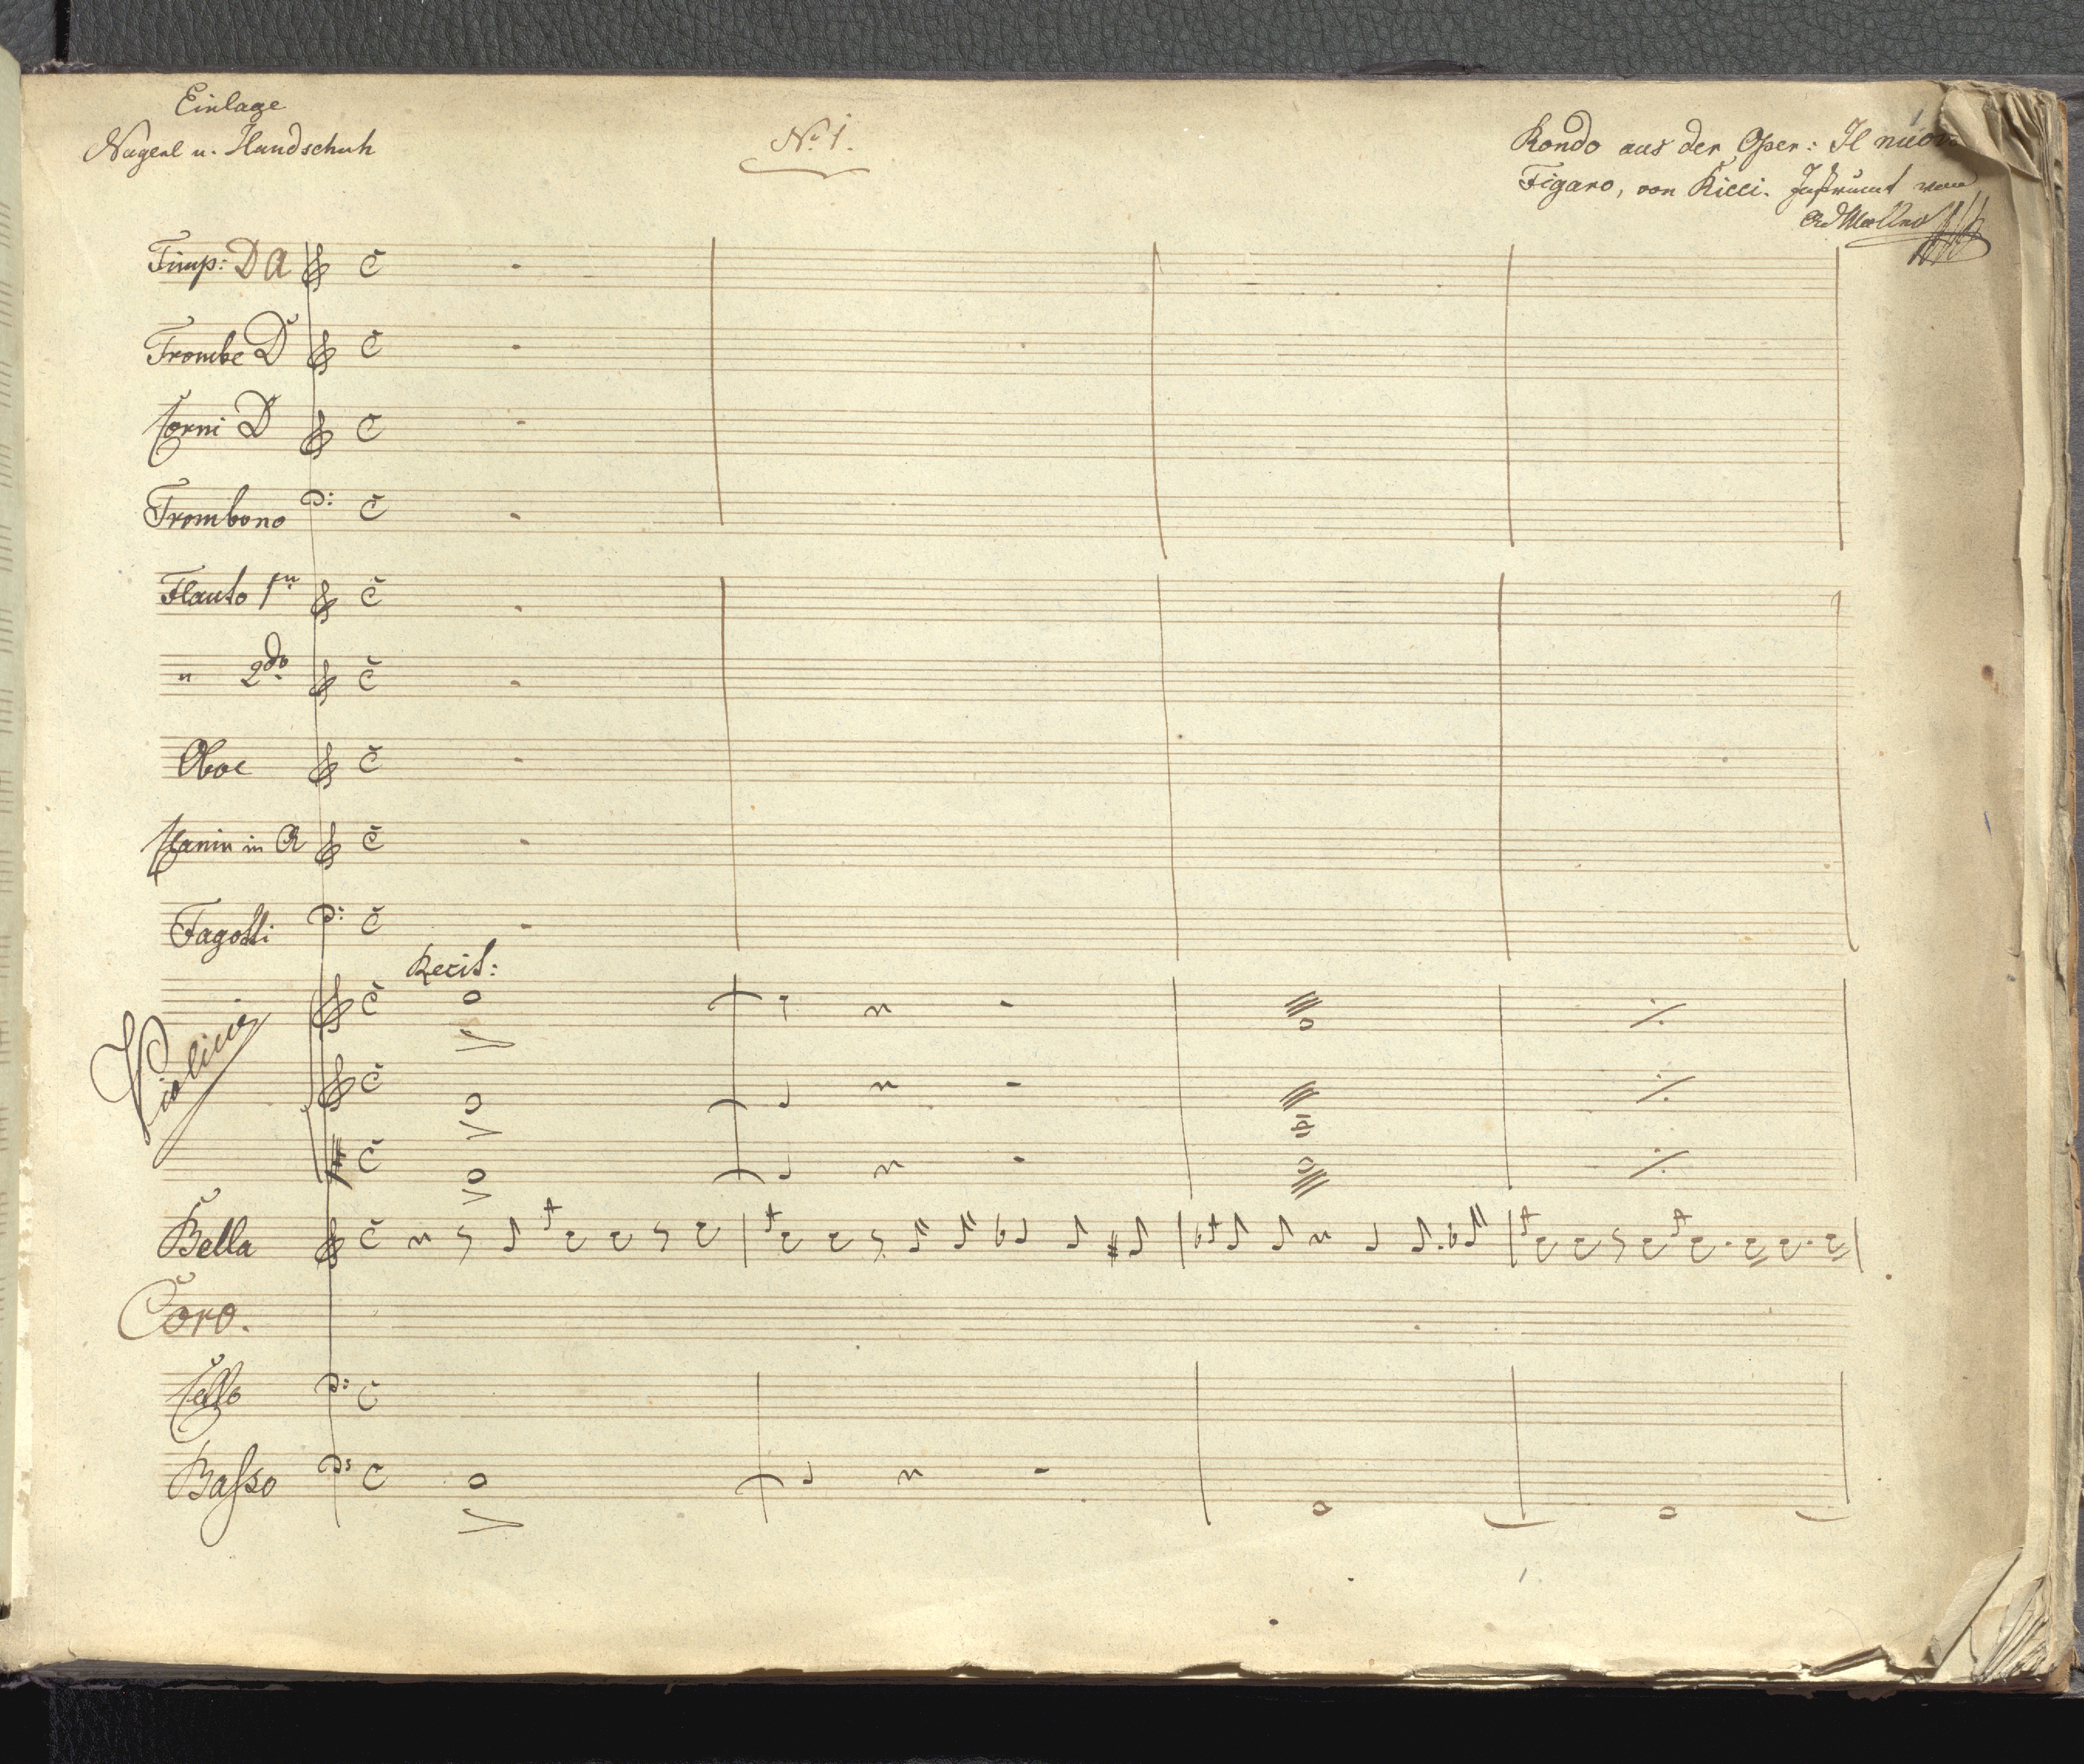 Einlage
Nagerl u. Handschuh
No. 1.
Rondo aus der Oper: Il nuovo
Figaro, von Ricci. Instrumt von
Ad Müller
Timp: D A
Trombe D
Corni D
Trombono
Flauto 1mo
" 2do
Oboe
Clarin in A
Fagotti
Recit:
Violini
Bella
Coro.
Cello
Basso